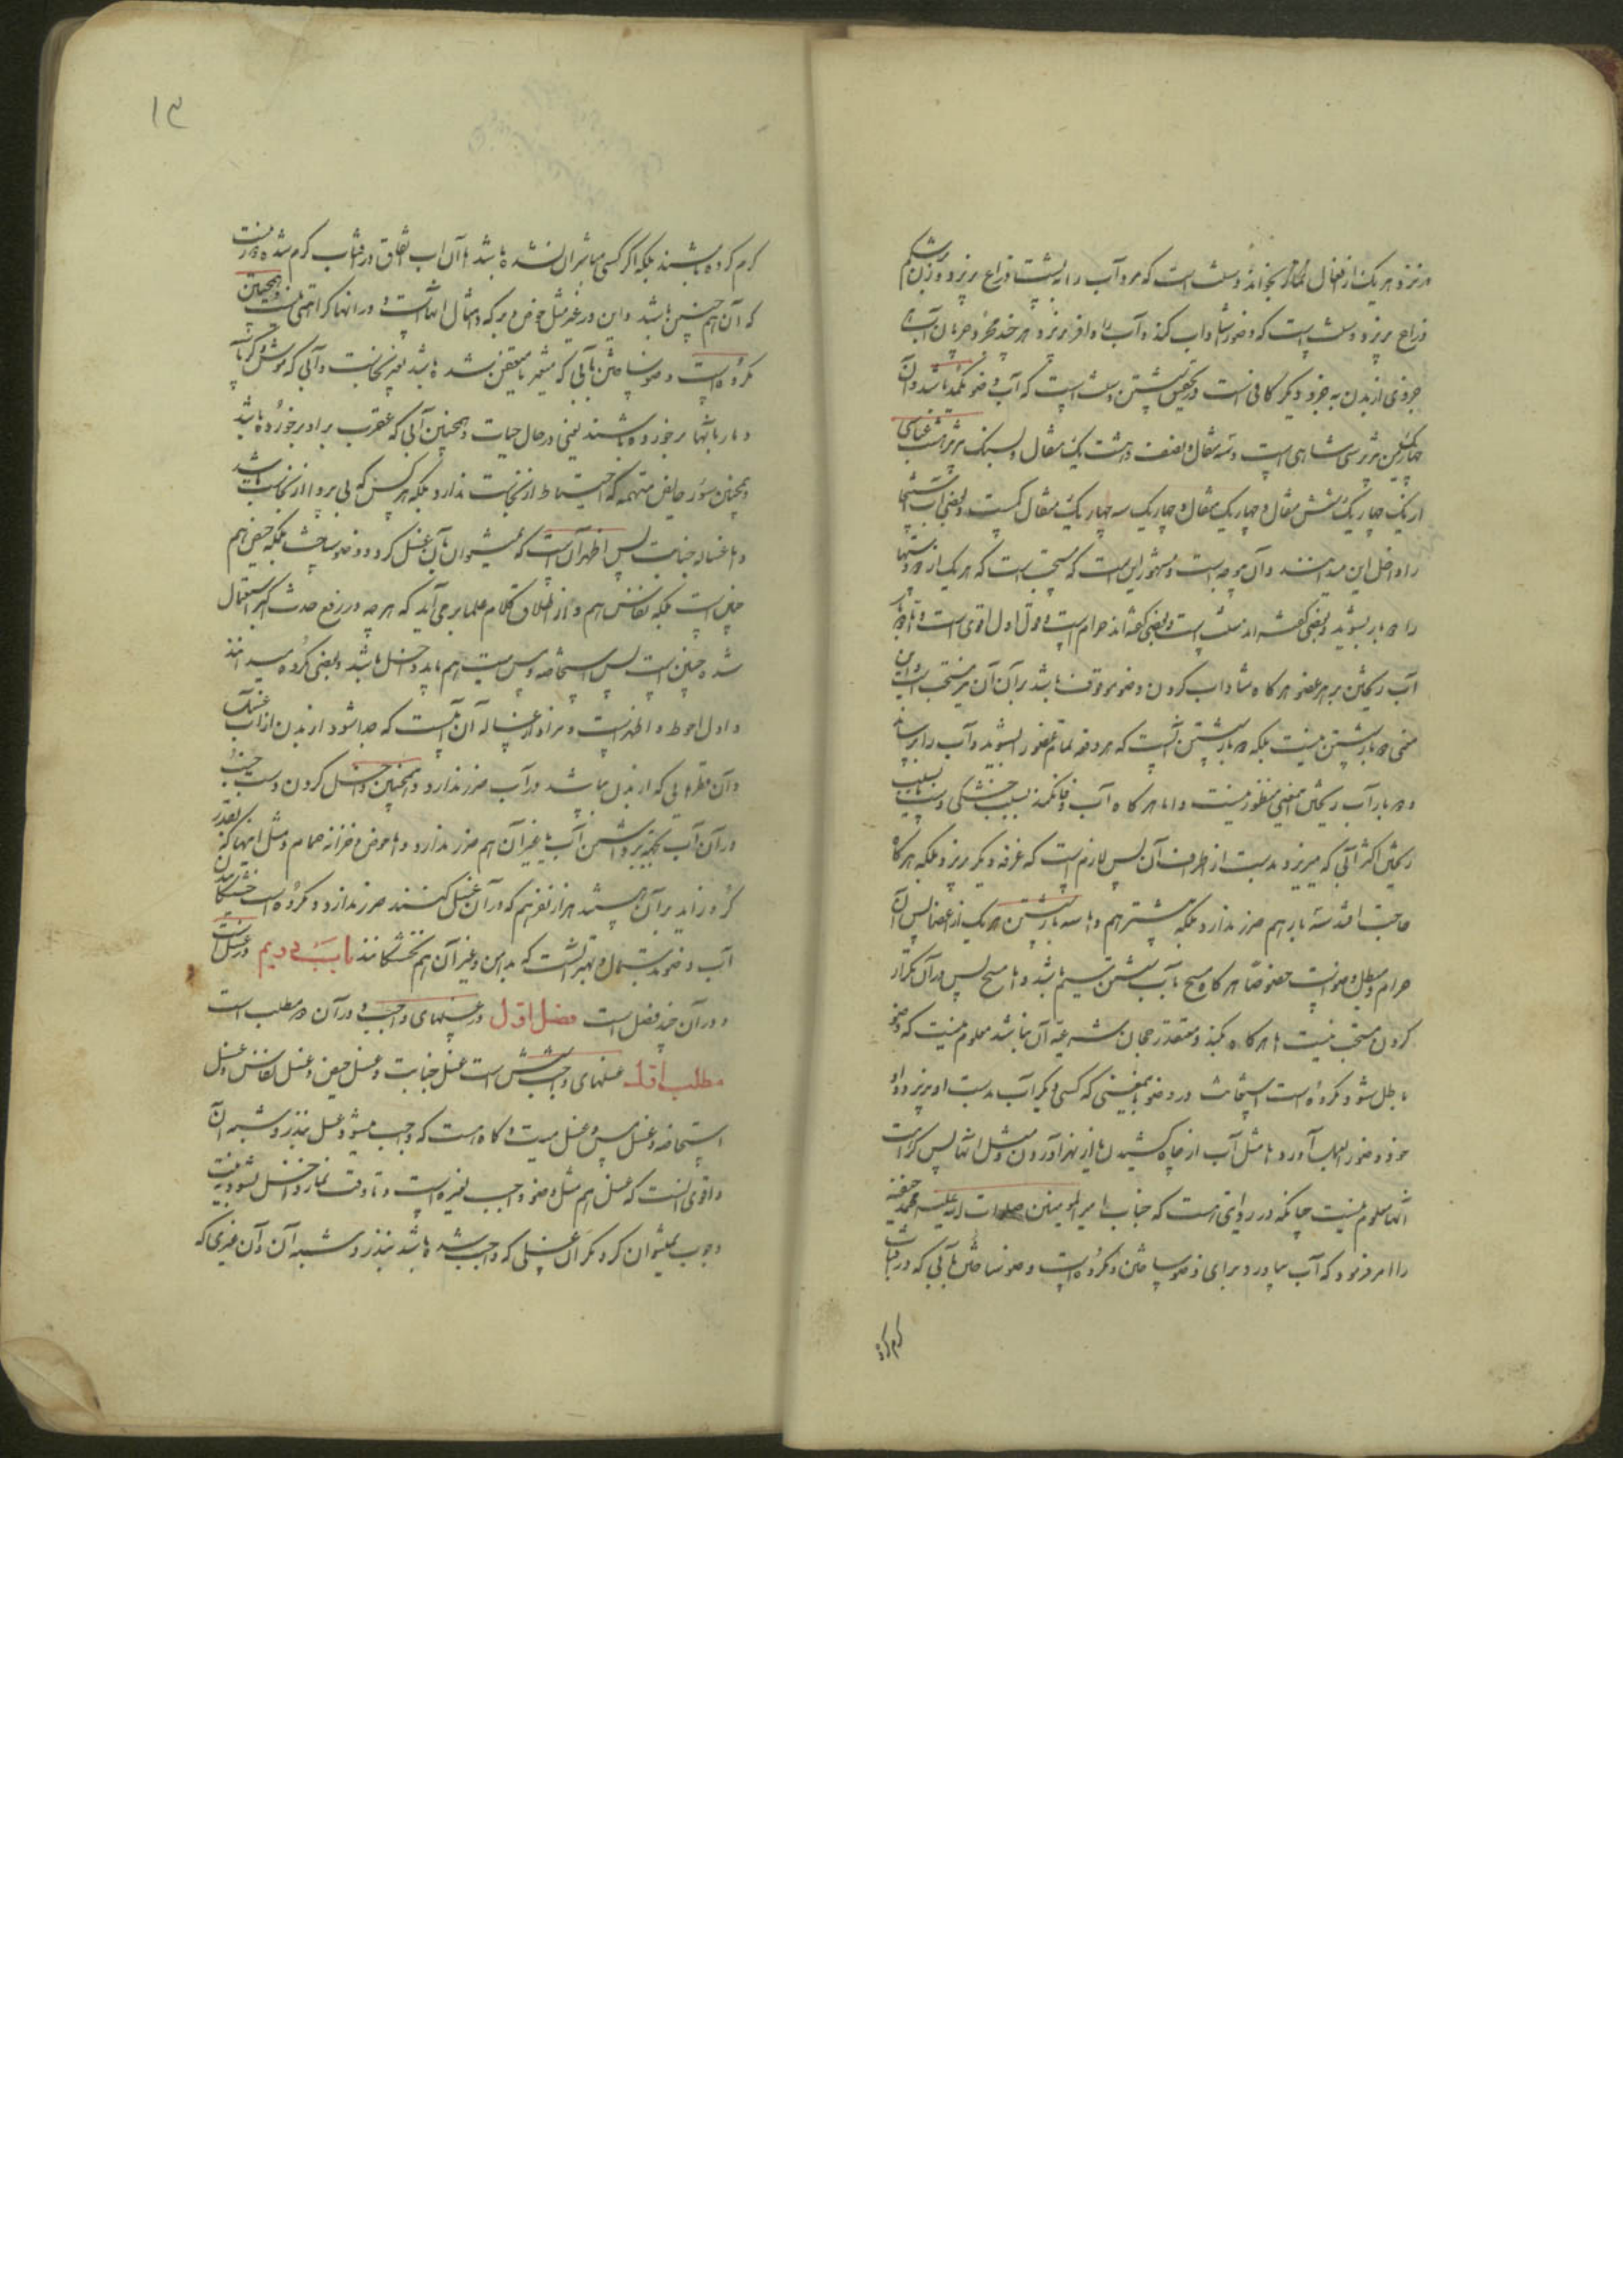 در نزد هر یک از افعال نماز بخواند و سنت است که مرد آب را به پشت ذراع بریزد و زن بشکم
ذراع بریزد و سنت است که وضو را شاداب کند و آب را وافر بریزد هر چند مجرد جریان آب از
جزوی از بدن به جزو دیگر کافی است در تحقق شستن و سنت است که آب وضو یکمد باشد و آن
شاهی است و سه مثقال و نصف و هشت یک مثقال و بسنگ تبریز هشت عباسی
چهار یک و شش مثقال و چهار یک مثقال و چهار یک سه چهار یک مثقال کمست و بعضی آب استنجا
را داخل این میدانند و آن موجه است و مشهور این است که مستحب است که هر یک از رو و دستها
را دو بار بشوید و بعضی گفته اند سنت است و بعضی گفته اند حرام است و قول اول اقوی است و دو بار
آب ریختن بر هر عضو هرگاه شاداب کردن وضو موقوف باشد بر آن آن نیز مستحب است این
معنی دو بار شستن نیست بلکه دو بار شستن آنست که هر دفعه تمام عضو را بشوید و آب را برساند
و دو بار آب ریختن باین معنی منظور نیست و اما هرگاه آب وفا نکند بسبب خشکی دست یا بسبب
ریختن اکثر آبی که میریزد بدست از اطراف آن پس لازم است که غرفه دیگر بریزد بلکه هرگاه
حاجت افتد سه بار هم ضرر ندارد بلکه بیشتر هم و اما سه بار شستن هر یک از اعضا پس آن
حرام و مبطل وضو است خصوصا هرگاه مسح بآب شستن سیم باشد و اما مسح پس در آن تکرار
کردن مستحب نیست اما هرگاه بکند و معتقد رجحان شرعیه آن نباشد معلوم نیست که وضو
باطل شود و مکروه است استعانت در وضو بمعنی که کسی دیگر آب بدست او بریزد و او
خود وضو را بعمل آورد و اما مثل آب از چاه کشیدن یا از نهر آوردن و مثل اینها پس کراهت
آنها معلوم نیست چنانکه در روایتی هست که جناب امیرالمؤمنین صلوات الله علیه محمد حنفیه
را امر فرمود که آب بیاورد برای وضو ساختن و مکروه است وضو ساختن بآبی که در آفتاب
گرم کرده
۱۳
گرم کرده باشند بلکه اگر کسی مباشر آن نشده باشد یا آن آب باتفاق در آفتاب گرم شده دور نیست
که آن هم چنین باشد و این در غیر مثل حوض و برکه و امثال اینهاست و در آنها کراهتی نیست و همچنین
مکروه است وضو ساختن بآبی که متغیر یا متعفن شده باشد بغیر نجاست و آبی که موش و کربسه
و مار بآنها برخورده باشند یعنی در حال حیات و همچنین آبی که عقرب در او برخورده باشد
و همچنین سؤر حایض متهمه که احتیاط از نجاست ندارد بلکه هر کس که بی پروا از نجاست باشد
و اما غساله جنابت پس اظهر آنست که نمیتوان بآن غسل کرد و وضو ساخت بلکه حیض هم
چنین است بلکه نفاس هم و از اطلاق کلام علما بر می آید که هر چه در رفع حدث اکبر استعمال
شده چنین است پس استحاضه و مس میت هم باید داخل باشد و بعضی مکروه میدانند
و اول احوط و اظهر است و مراد از غساله آن آبست که جدا شود از بدن از آب غسل
و آن قطرهایی که از بدن بپاشد در آب ضرر ندارد و همچنین داخل کردن دست جنب
در آن آب بجهة برداشتن آب یا غیر آن هم ضرر ندارد و اما حوض و خزانه حمام و مثل اینها که بقدر
کر و زاید بر آن باشد هزار نفر هم که در آن غسل کنند ضرر ندارد و مکروه است خشکانیدن
آب وضو بدستمال و بهتر آنست که بدامن و غیر آن هم نخشکانند باب دویم در غسل است
و در آن چند فصل است فصل اول در غسلهای واجب و در آن دو مطلب است
مطلب اول غسلهای واجب شش است غسل جنابت و غسل حیض و غسل نفاس و غسل
استحاضه و غسل مس و غسل میت و گاه هست که واجب میشود غسل بنذر و شبه آن
و اقوی آنست که غسل هم مثل وضو واجب لغیره است و تا وقت نماز داخل نشود نیت
وجوب نمیتوان کرد مگر آن غسلی که واجب شده باشد بنذر و شبه آن و آن غیری که